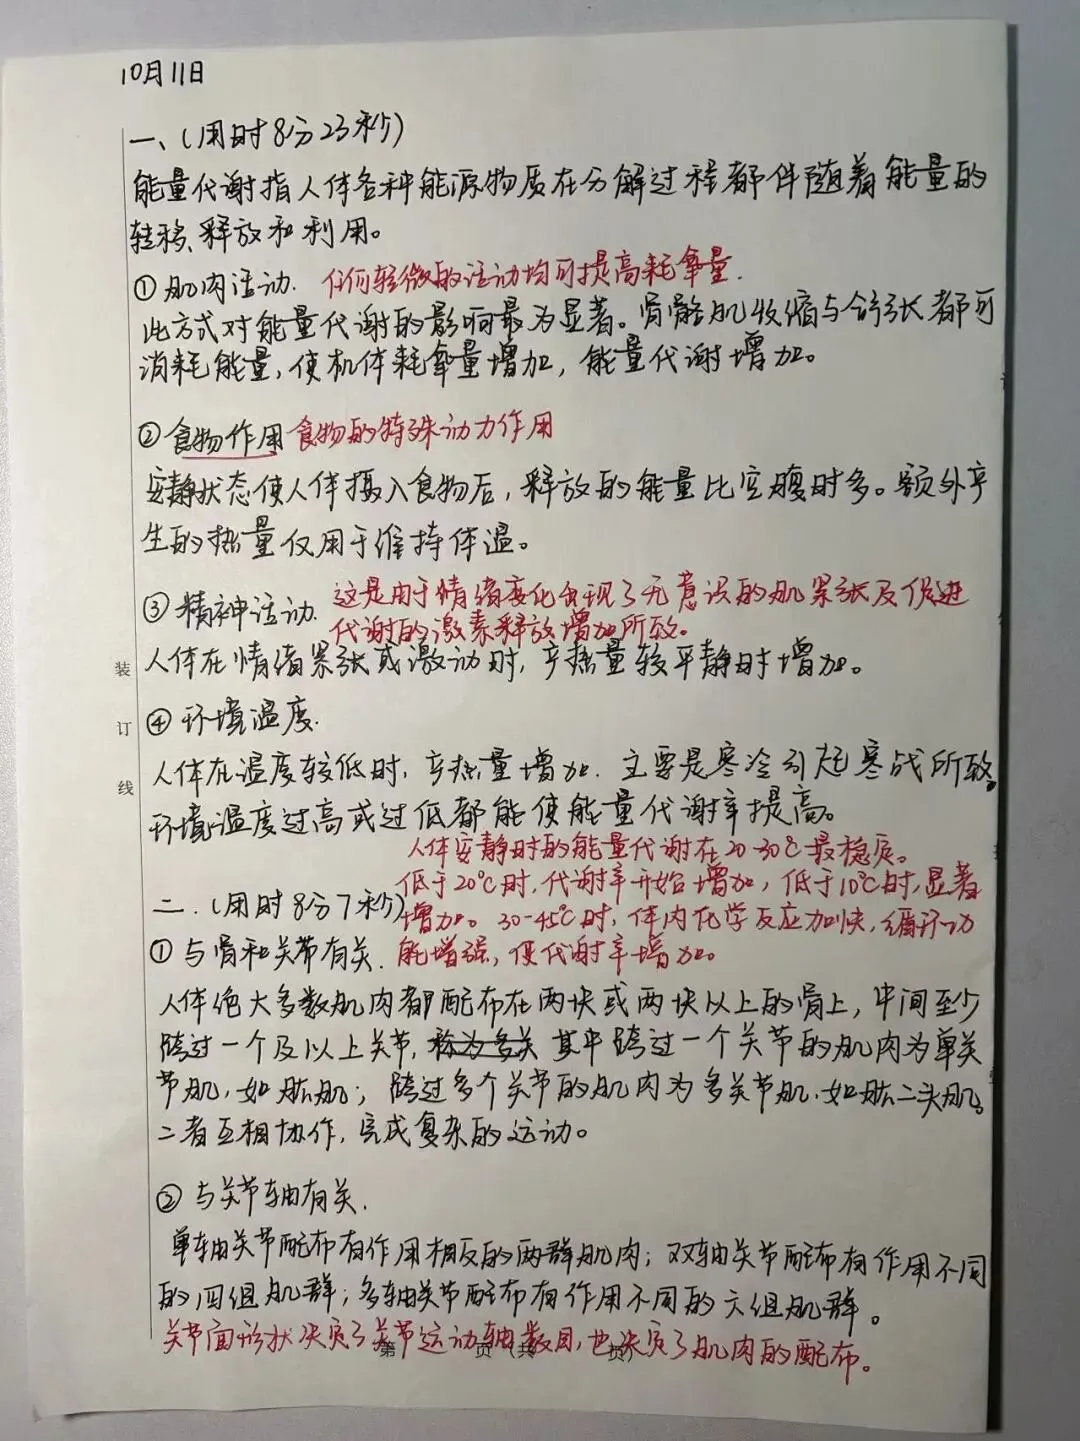 10月11日
一、(用时8分23秒)
能量代谢指人体各种能源物质在分解过程都伴随着能量的
转移、释放和利用。
① 肌肉活动. 任何轻微的活动均可提高耗氧量.
此方式对能量代谢的影响最为显著。骨骼肌收缩与舒张都可
消耗能量,使机体耗氧量增加,能量代谢增加。
② 食物作用 食物的特殊动力作用
安静状态使人体摄入食物后,释放的能量比空腹时多。额外产
生的热量仅用于维持体温。
③ 精神活动. 这是由于情绪变化出现了无意识的肌紧张及促进
代谢的激素释放增加所致。
人体在情绪紧张或激动时,产热量较平静时增加。
④ 环境温度.
人体在温度较低时,产热量增加.主要是寒冷引起寒战所致。
环境温度过高或过低都能使能量代谢率提高。
人体安静时的能量代谢在20-30℃最稳定。
低于20℃时,代谢率开始增加,低于10℃时,显著
二.(用时8分7秒) 增加。30-45℃时,体内化学反应加快,循环功
① 与骨和关节有关. 能增强,使代谢率增加。
人体绝大多数肌肉都配布在两块或两块以上的骨上,中间至少
跨过一个及以上关节,称为多关 其中跨过一个关节的肌肉为单关
节肌.如肱肌;跨过多个关节的肌肉为多关节肌.如肱二头肌。
二者互相协作,完成复杂的运动。
② 与关节轴有关.
单轴关节配布有作用相反的两群肌肉;双轴关节配布有作用不同
的四组肌群;多轴关节配布有作用不同的六组肌群。
关节面形状决定了关节运动轴数目,也决定了肌肉的配布。
装
订
线
第 页(共 页)